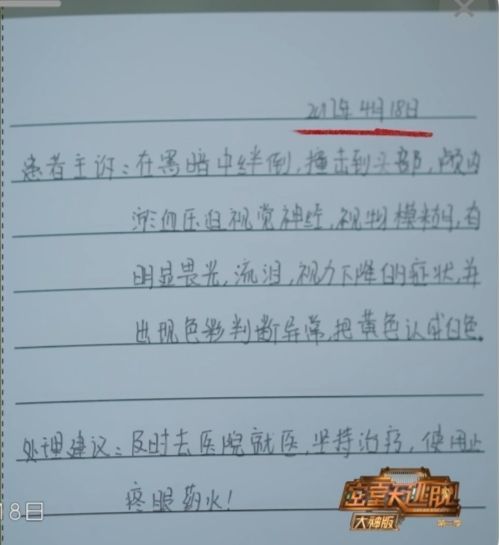 2017年4月18日
患者主诉：在黑暗中绊倒，撞击到头部，颅内
淤血压迫视觉神经，视物模糊，有
明显畏光，流泪，视力下降的症状，并
出现色彩判断异常，把黄色认成白色。
处理建议：及时去医院就医，坚持治疗，使用止
疼眼药水！
18日
密室大逃脱
大神版
第三季